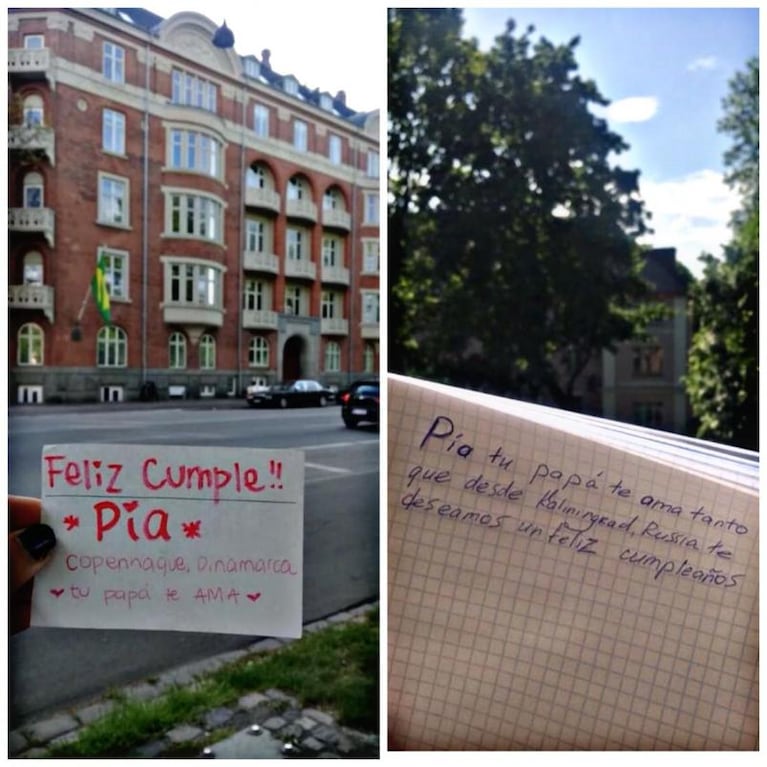 Feliz Cumple!!
* Pía *
Copenhague, Dinamarca
♥ tu papá te AMA ♥
Pía tu papá te ama tanto
que desde Kaliningrad, Russia te
deseamos un feliz cumpleaños